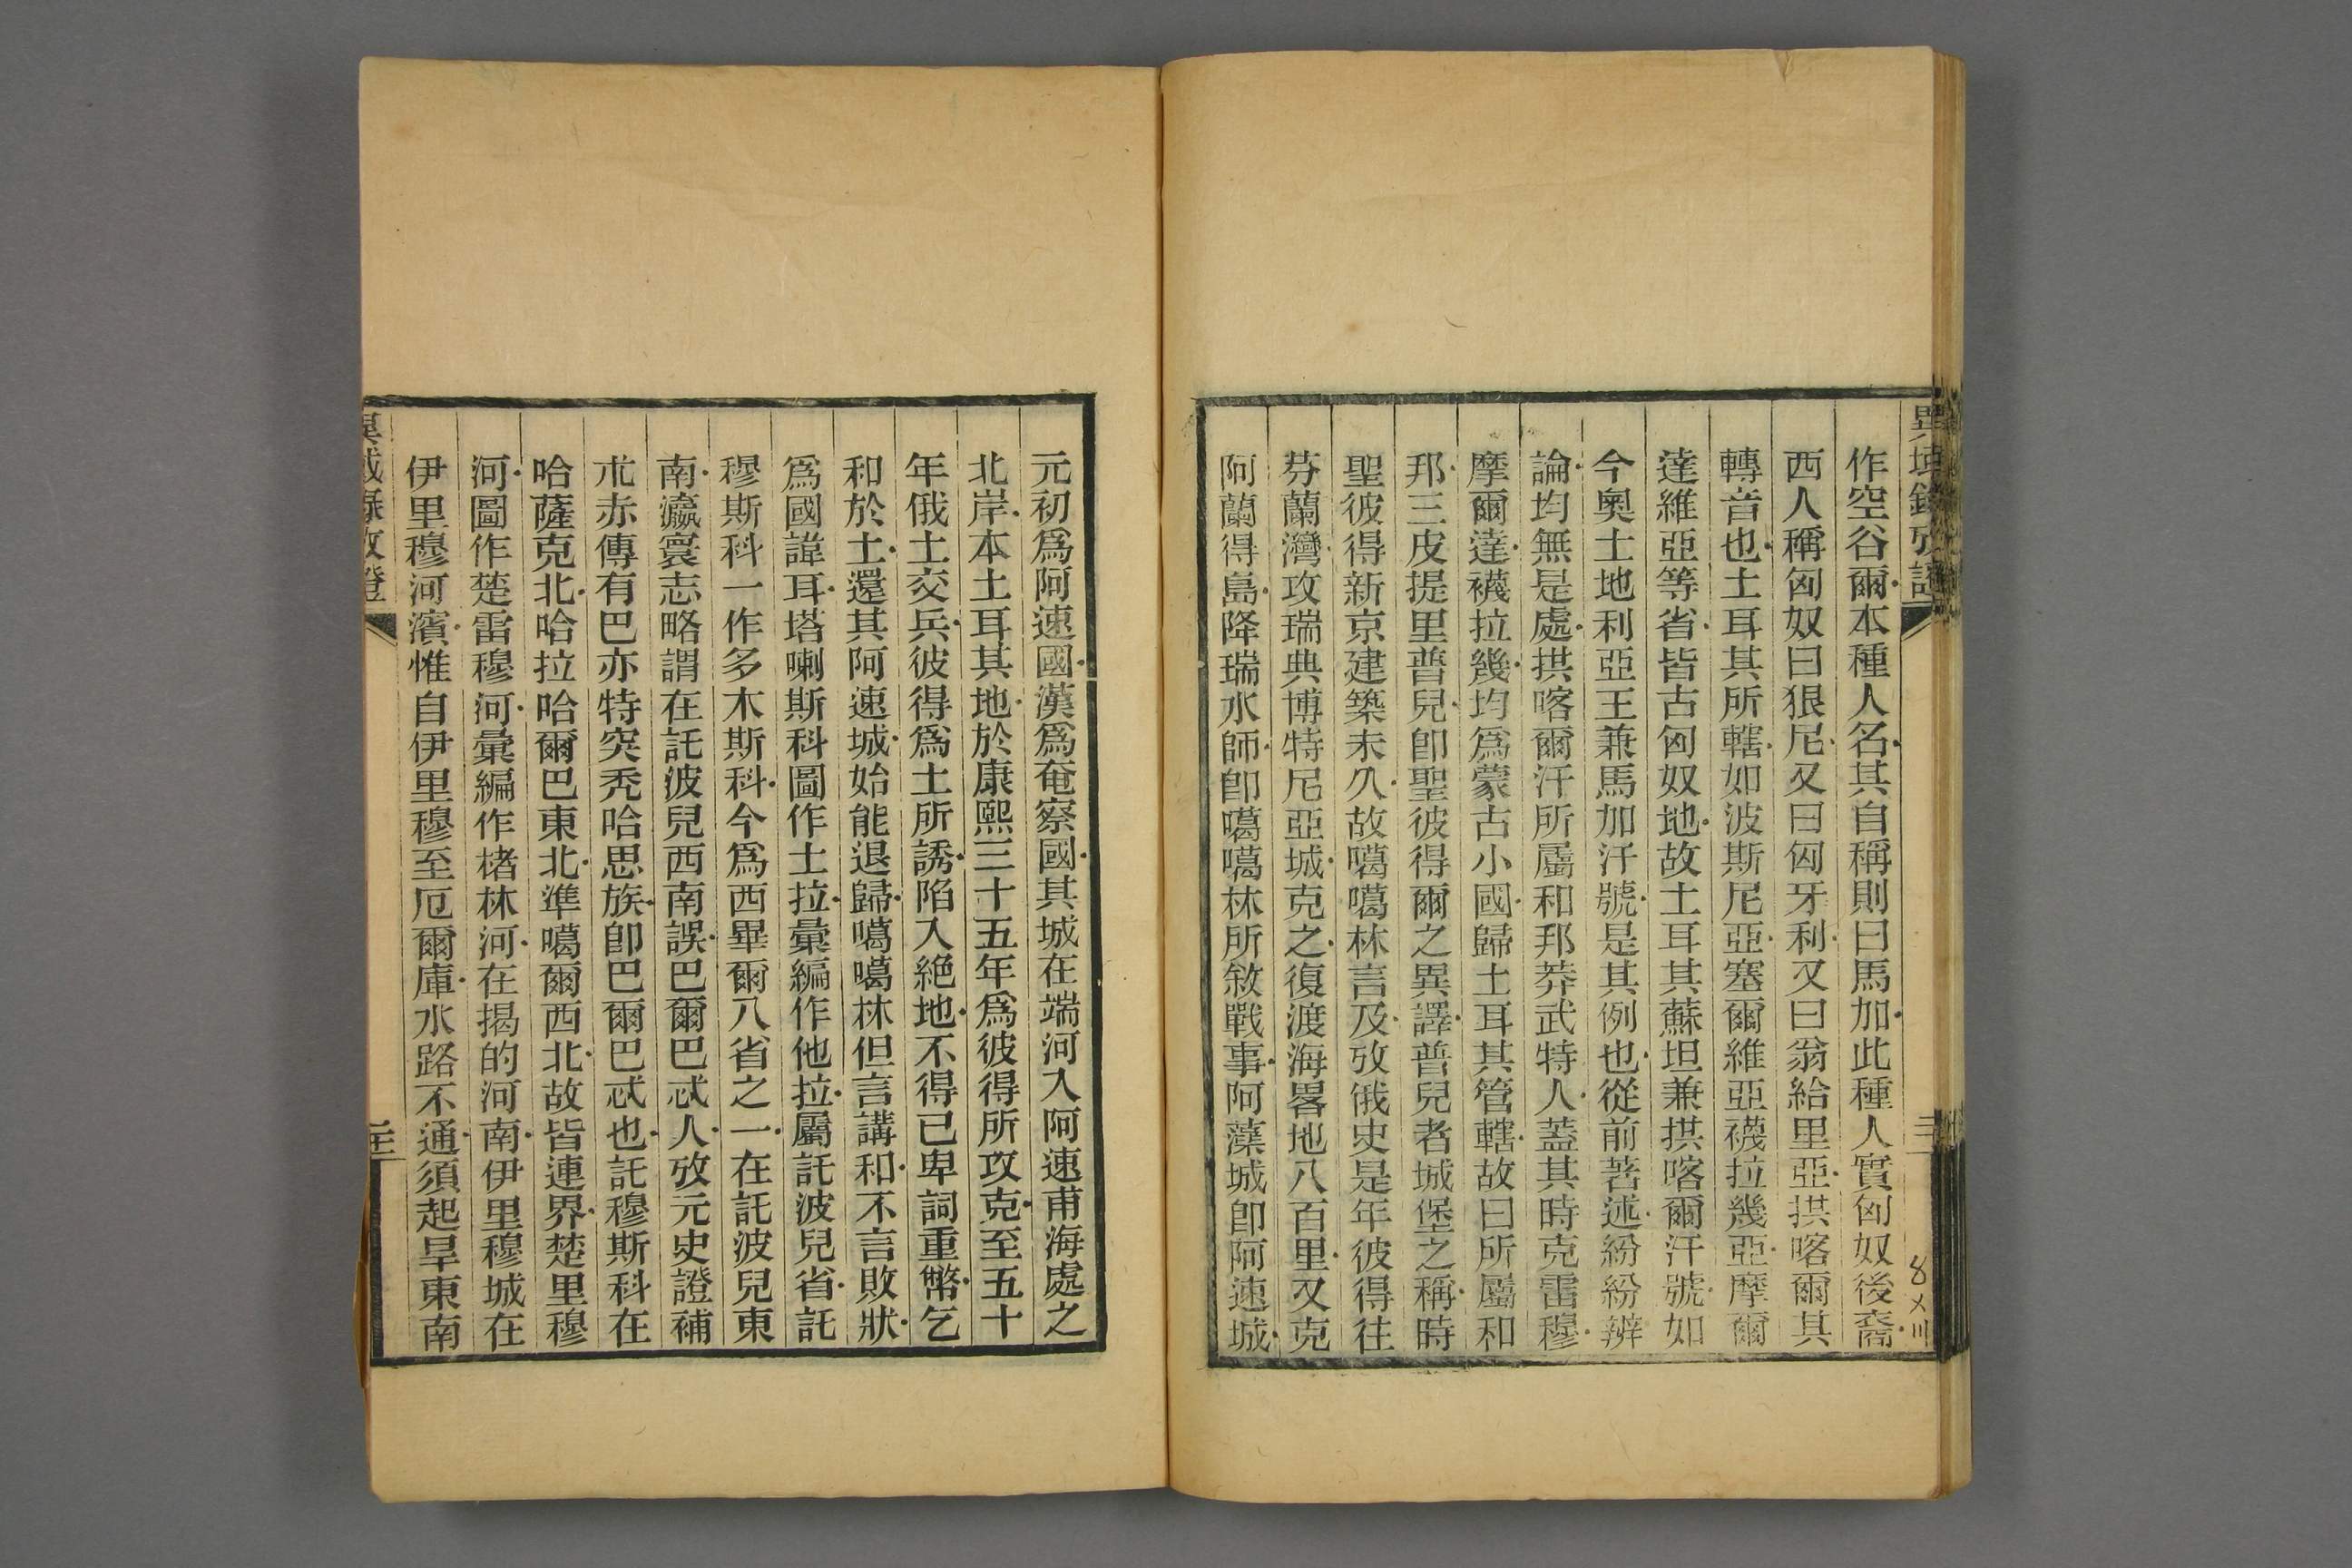 異域錄攷證
三
作空谷爾本種人名其自稱則曰馬加此種人實匈奴後裔
西人稱匈奴曰狠尼又曰匈牙利又曰翁給里亞拱喀爾其
轉音也土耳其所轄如波斯尼亞塞爾維亞襪拉幾亞摩爾
達維亞等省皆古匈奴地故土耳其蘇坦兼拱喀爾汗號如
今奧士地利亞王兼馬加汗號是其例也從前著述紛紛辨
論均無是處拱喀爾汗所屬和邦莽武特人蓋其時克雷穆
摩爾達襪拉幾均爲蒙古小國歸土耳其管轄故曰所屬和
邦三皮提里普兒卽聖彼得爾之異譯普兒者城堡之稱時
聖彼得新京建築未久故噶噶林言及攷俄史是年彼得往
芬蘭灣攻瑞典博特尼亞城克之復渡海畧地八百里又克
阿蘭得島降瑞水師卽噶噶林所敘戰事阿藻城卽阿速城
元初爲阿速國漢爲奄察國其城在端河入阿速甫海處之
北岸本土耳其地於康熙三十五年爲彼得所攻克至五十
年俄土交兵彼得爲土所誘陷入絶地不得已卑詞重幣乞
和於土還其阿速城始能退歸噶噶林但言講和不言敗狀
爲國諱耳塔喇斯科圖作土拉彙編作他拉屬託波兒省託
穆斯科一作多木斯科今爲西畢爾八省之一在託波兒東
南瀛寰志略謂在託波兒西南誤巴爾巴忒人攷元史證補
朮赤傳有巴亦特突秃哈思族卽巴爾巴忒也託穆斯科在
哈薩克北哈拉哈爾巴東北準噶爾西北故皆連界楚里穆
河圖作楚雷穆河彙編作楮林河在揭的河南伊里穆城在
伊里穆河濱惟自伊里穆至厄爾庫水路不通須起旱東南
異域錄攷證